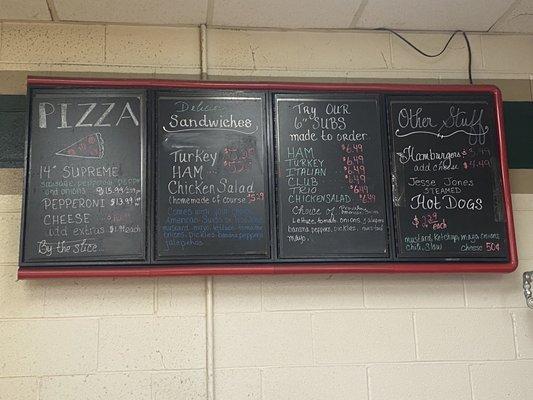 PIZZA
14" SUPREME
Sausage, pepperoni, peppers
and onions $15.99
PEPPERONI $13.99
CHEESE
add extras $1.99 each
By the slice...
Delicious
Sandwiches
Turkey
HAM
Chicken Salad
(homemade of course)
Comes with your choice
American, Swiss or
mustard, mayo, lettuce, tomato
onions, pickles, banana peppers
jalapeños
Try Our
6" SUBS
made to order
HAM $6.49
TURKEY $6.49
ITALIAN $6.49
CLUB $6.49
TRIO $6.49
CHICKEN SALAD $6.49
Choice of Provolone
American, Swiss
lettuce, tomato, onions, pickles
banana peppers, mustard
mayo
Other Stuff
Hamburgers
add cheese $4.49
Jesse Jones
STEAMED
HOT DOGS
each
mustard, Ketchup, onions
chili, slaw cheese 50¢